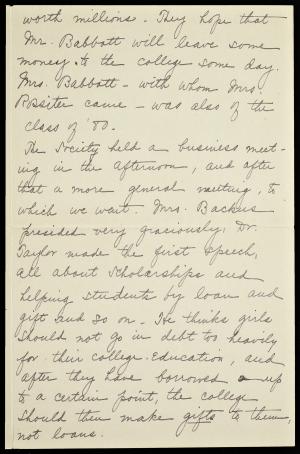 worth millions. They hope that
Mr. Babbott will leave some
money to the college some day.
Mrs. Babbott - with whom Mrs.
Rositer came - was also of the
class of '80.
The Society held a business meet-
ing in the afternoon, and after
that a more general meeting, to
which we went. Mrs. Backus
presided very graciously, Dr.
Taylor made the first speech,
all about scholarships and
helping students by loan and
gift and so on. He thinks girls
should not go in debt too heavily
for their college education, and
after they have borrowed up
to a certain point, the college
should then make gifts to them,
not loans.